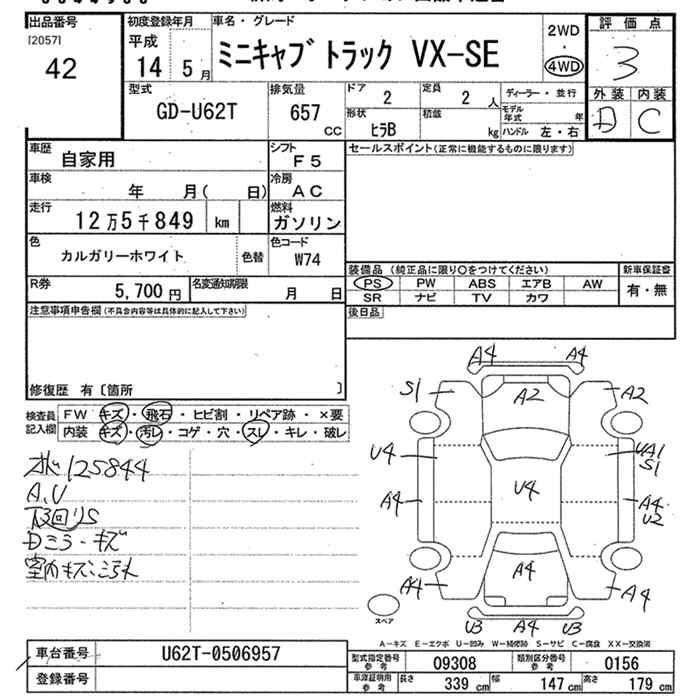 出品番号 初度登録年月 車名・グレード 評価点
[2057] 平成 ミニキャブ トラック VX-SE 2WD
42 14年 5月 ・ 4WD 3
型式 排気量 ドア 定員 ディーラー・並行 外装 内装
GD-U62T 657 cc 2 2人 モデル年式 年 D C
形状 積載
ヒラB kg ハンドル 左・右
車歴 自家用 シフト F5 セールスポイント(正常に機能するものに限ります)
車検 年 月( 日) 冷房 AC
走行 12万5千849 km 燃料 ガソリン
色 カルガリーホワイト 色替 色コード W74
装備品 (純正品に限り○をつけてください) 新車保証書
PS PW ABS エアB AW 有・無
SR ナビ TV カワ
R券 5,700円 名変通知期限 月 日
後日品
注意事項申告欄(不具合内容等は具体的に記入して下さい)
修復歴 有〔箇所 〕
検査員 FW キズ・飛石・ヒビ割・リペア跡・×要
記入欄 内装 キズ・汚レ・コゲ・穴・スレ・キレ・破レ
125844
A.U
下回りS
Dミラーキズ
室内キズ
A4 A4
S1 A2 A2
U4 UA1
S1
A4 U4 A4
U2
A4 A4 A4
スペア
U3 A4 U3
A-キズ E-エクボ U-凹み W-補修跡 S-サビ C-腐食 XX-交換済
車台番号 U62T-0506957
登録番号
型式指定番号 参考 09308 類別区分番号 参考 0156
車庫証明用 参考 長さ 339cm 幅 147cm 高さ 179cm